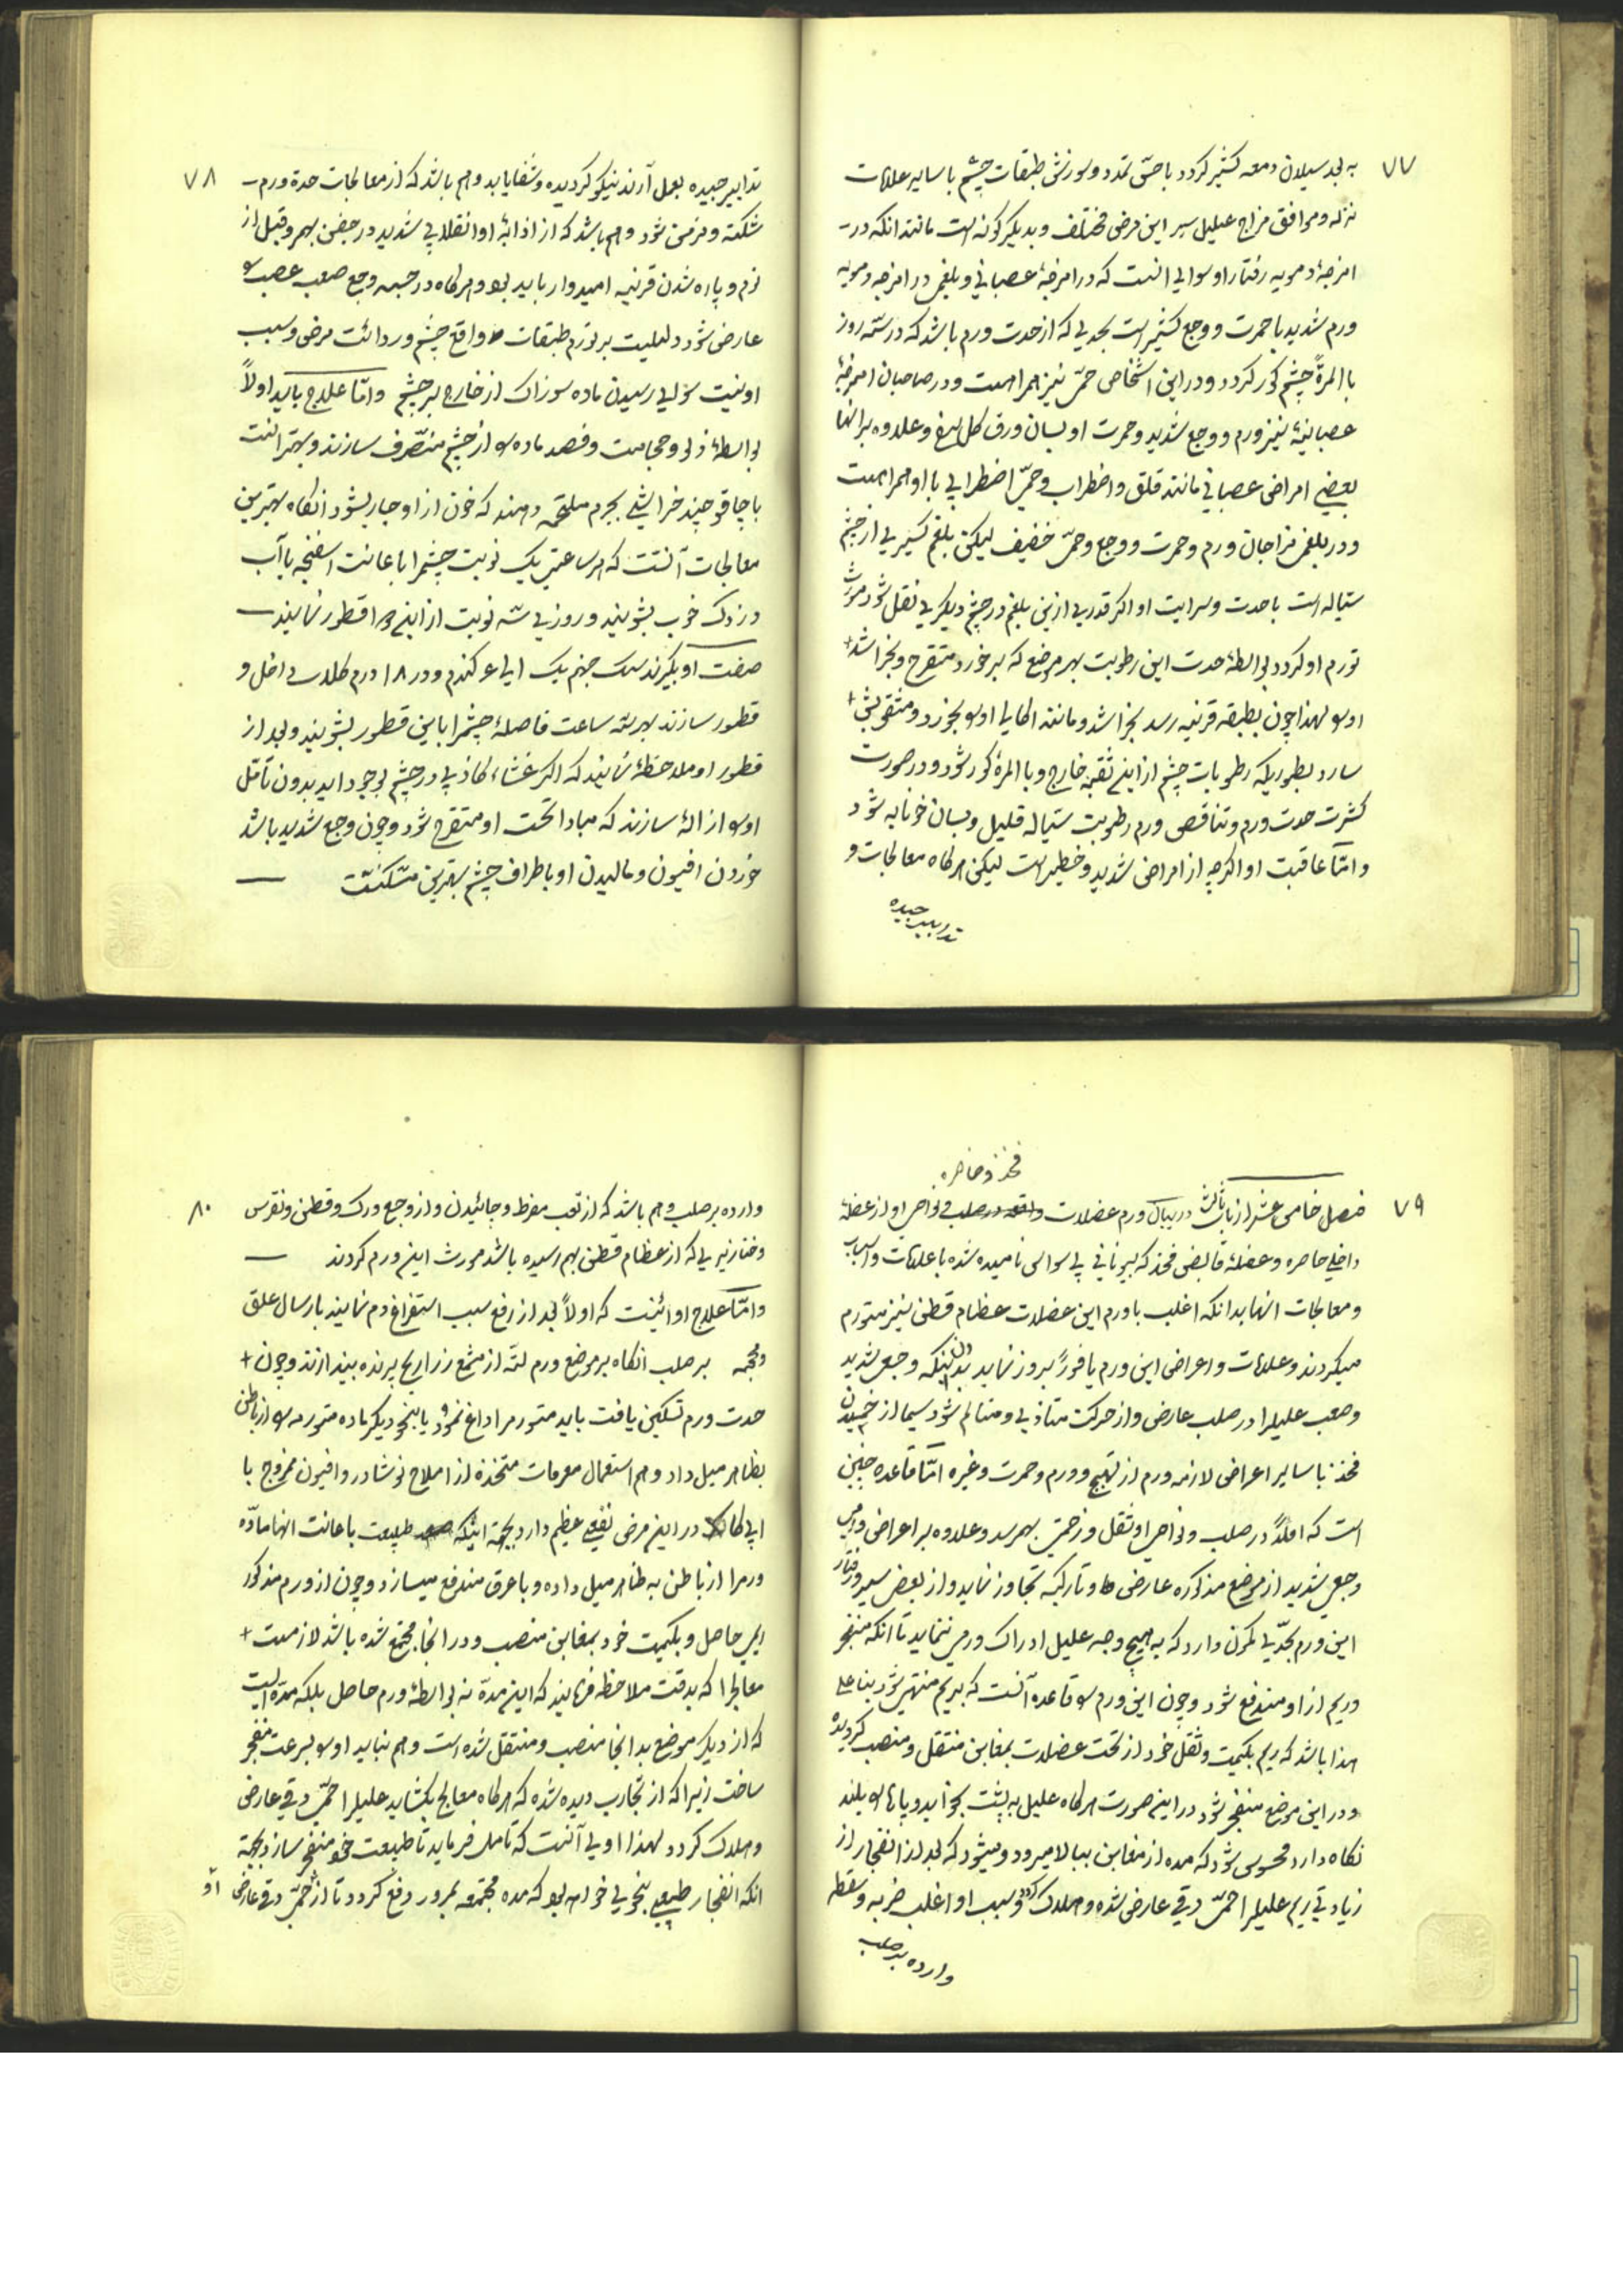 ۷۷
به بعد سیلان دمعه کثیر کردد با حسّ تمدد و سوزش طبقات چشم با سایر علامات
نزله و موافق مزاج علیل سیر این مرض مختلف و بدیکر کونه است مانند انکه در
امزجهٔ دمویه رفتار او سوای انست که در امزجهٔ عصبانی و بلغمی در امزجه دمویه
ورم شدید با حمرت و وجع کثیر است بحدی که از حدت ورم باشد که در سّه روز
باالمرةً چشم کور کردد و در این اشخاص حمّی نیز همراهست و در صاحبان امزجهٔ
عصبانیهٔ نیز ورم و وجع شدید و حمرت او بسان ورق کل سرخ و علاوه بر انها
بعضی امراض عصبانی مانند قلق و اضطراب و حمّی اضطرابی با او همراهست
و در بلغمی مزاجان ورم و حمرت و وجع و حمّی خفیف لیکن بلغم کثیری از چشم
سیّاله است با حدت و سرایت او اکر قدری ازین بلغم در چشم دیکری نقل شود مورث
تورم او کردد بواسطهٔ حدت این رطوبت بهر موضع که برخورد متقرح و بخراشد
اورا لهذا چون بطبقه قرنیه رسد بخراشد و مانند اکال او را بخورد و مثقوبش
سازد بطوریکه رطوبات چشم از این ثقبه خارج و باالمرة کور شود و در صورت
کثرت حدت ورم و تناقص ورم رطوبت سیّاله قلیل و بسان خونابه شود
و امّا عاقبت او اکرچه از امراض شدید و خطیر است لیکن هرکاه معالجات و
تدابیر جیده
۷۸
تدابیر جیده بعمل آرند نیکو کردیده و شفا یابد و هم باشد که از معالجات حدة ورم
شکسته و مزمن شود و هم باشد که از اذابهٔ او انقلابی شدید در جفن بهمرسد و قبل از
نرم و پاره شدن قرنیه امیدوار باید بود و هرکاه در جبهه وجع صعب عصبی
عارض شود دلیلیست بر تورم طبقات واقع چشم و ردائت مرض و سبب
او نیست سوای رسیدن ماده سوزاک از خارج بر چشم و امّا علاج باید اولاً
بواسطهٔ زلو و حجامت و فصد ماده را از چشم منصرف سازند و بهتر انست
با چاقو چند خراش بجرم ملتحمه دهند که خون از او جاری شود انکاه بهترین
معالجات آنست که هر ساعتی یک نوبت چشم را باعانت اسفنجه با آب
و زردک خوب بشویند و روزی سّه نوبت از این قطور نمایند
صفت او بکیرند سنک جهنم یک الی ع کندم و در ۱۸ درم کلاب داخل و
قطور سازند بهر سّه ساعت فاصلهٔ چشم را باین قطور بشویند و بعد از
قطور او ملاحظهٔ نمایند که اکر غشاء کاذبی در چشم بوجود اید بدون تأمّل
او را ازالهٔ سازند که مبادا تحت او متقرح شود و چون وجع شدید باشد
خوردن افیون و مالیدن او باطراف چشم بهترین مسّکنست
۷۹
فصل خامس عشر از باب ثالث در بیان ورم عضلات واقعه در صلب و نواحی او از عضلهٔ
فخذ و خاصره
داخلی خاصره و عضلهٔ قابض فخذ که بیونانی پسواس نامیده شده با علامات و اسباب
و معالجات انها بدانکه اغلب با ورم این عضلات عظام قطن نیز متورم
میکردند و علامات و اعراض این ورم یا فوراً بروز نماید بدینکه وجع شدید
و صعب علیل را در صلب عارض و از حرکت متاذی و متالم شود سیما از خمیدن
فخذ با سایر اعراض لازمه ورم از تهیج و ورم و حمرت و غیره امّا قاعده چنین
است که اولاً در صلب و نواحی او ثقل و زحمتی بهمرسد و علاوه بر اعراض ورمی
وجع شدید از موضع مذکوره عارض و تا رکبه تجاوز نماید و از بعض سیر و رفتار
این ورم بحدّی کمون دارد که به هیچ وجه علیل ادراک ورمی ننماید تا انکه منفجر
و ریم از او مندفع شود و چون این ورم را قاعده آنست که بریم منتهی شود بنا علی
هذا باشد که ریم بکمیت و ثقل خود از تحت عضلات بمغابن منتقل و منصب کردیده
و در این موضع منفجر شود در این صورت هرکاه علیل به پشت بخوابد و پاها را بلند
نکاه دارد محسوس شود که مده از مغابن ببالا میرود و میشود که بعد از انفجار از
زیادتی ریم علیل را حمّی دقی عارض شده و هلاک کردد و سبب او اغلب ضربه و سقطه
وارده بر صلب
۸۰
وارده بر صلب و هم باشد که از تعب مفرط و جائیدن و از وجع ورک و قطن و نقرس
و خنازیری که از عظام قطن بهم رسیده باشد مورث این ورم کردند
و امّا علاج او اینست که اولاً بعد از رفع سبب استفراغ دم نمایند بارسال علق
و محجمه بر صلب انکاه بر موضع ورم لتّه از مشمع زراریح پرنده بیندازند و چون
حدت ورم تسکین یافت باید متورم را داغ نمود یا بنحو دیکر ماده متورمه را از باطن
بظاهر میل داد و هم استعمال معرقات متخذه از املاح نوشادر و افیون ممزوج با
اپیکاک در این مرض نفعی عظیم دارد بجهة اینکه طبیعت باعانت انها مادّه
ورم را از باطن به ظاهر میل داده و با عرق مندفع میسازد و چون از ورم مذکور
ریمی حاصل و بکمیت خود بمغابن منصب و در انجا مجتمع شده باشد لازمست
معالج را که بدقت ملاحظه فرمایند که این مدة نه بواسطهٔ ورم حاصل بلکه مدّه ایست
که از دیکر موضع بدانجا منصب و منتقل شده است و هم نباید او را بسرعت منفجر
ساخت زیرا که از تجارب دیده شده که هرکاه معالج بکشاید علیل را حمّی دقی عارض
و هلاک کردد لهذا اولی آنست که تامل فرماید تا طبیعت خود منفجر سازد بجهة
انکه انفجار طبیعی بنحوی خواهد بود که مده مجتمعه بمرور دفع کردد تا از حمّی دقی عارض
او